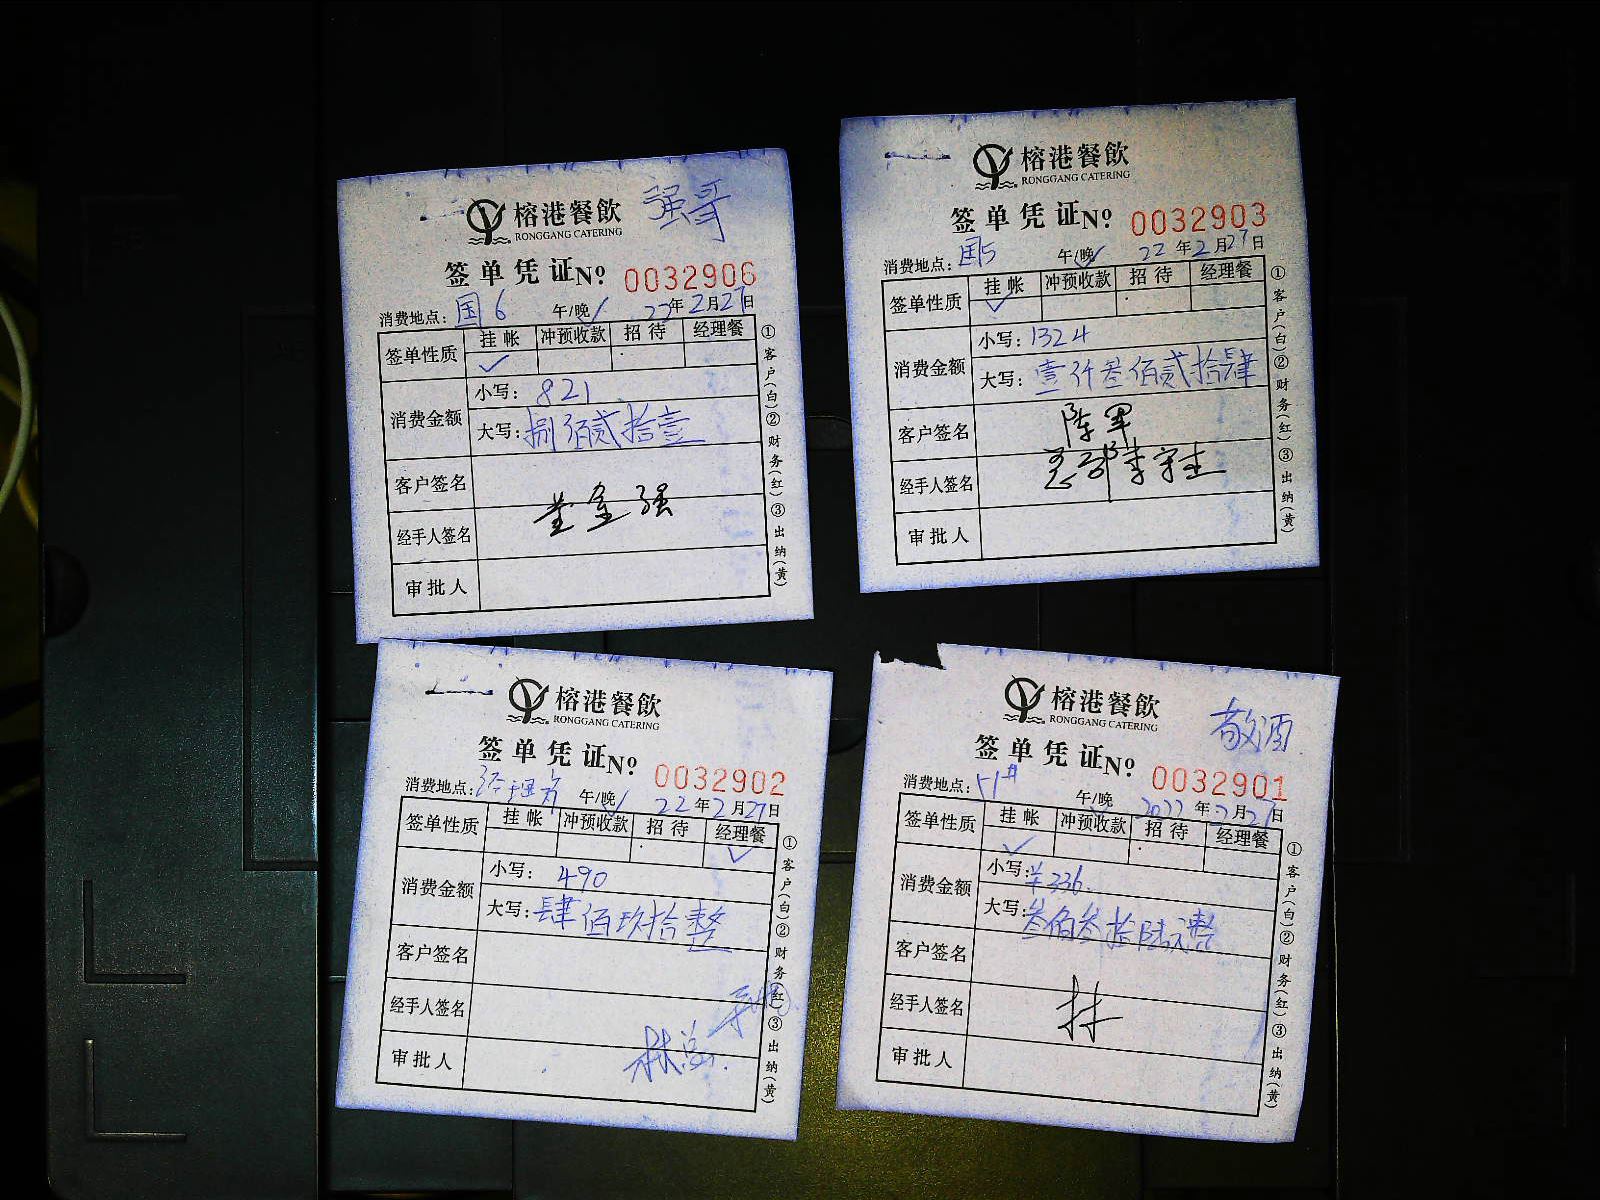 强哥
榕港餐飲
RONGGANG CATERING
签单凭证Nº 0032906
消费地点：国6 午/晚✓ 22年2月27日
签单性质 挂帐 冲预收款 招待 经理餐
✓
消费金额 小写：821
大写：捌佰贰拾壹
客户签名
经手人签名
审批人
①客户(白)②财务(红)③出纳(黄)
榕港餐飲
RONGGANG CATERING
签单凭证Nº 0032903
消费地点：国5 午/晚✓ 22年2月27日
签单性质 挂帐 冲预收款 招待 经理餐
✓
消费金额 小写：1324
大写：壹仟叁佰贰拾肆
客户签名 陈军
经手人签名 总部李
审批人
①客户(白)②财务(红)③出纳(黄)
榕港餐飲
RONGGANG CATERING
签单凭证Nº 0032902
消费地点： 午/晚✓ 22年2月27日
签单性质 挂帐 冲预收款 招待 经理餐
✓
消费金额 小写：490
大写：肆佰玖拾整
客户签名
经手人签名
审批人 林总
①客户(白)②财务(红)③出纳(黄)
榕港餐飲
RONGGANG CATERING
敬酒
签单凭证Nº 0032901
消费地点： 午/晚 2022年2月27日
签单性质 挂帐 冲预收款 招待 经理餐
✓
消费金额 小写：¥336.
大写：叁佰叁拾陆元整
客户签名
经手人签名 林
审批人
①客户(白)②财务(红)③出纳(黄)